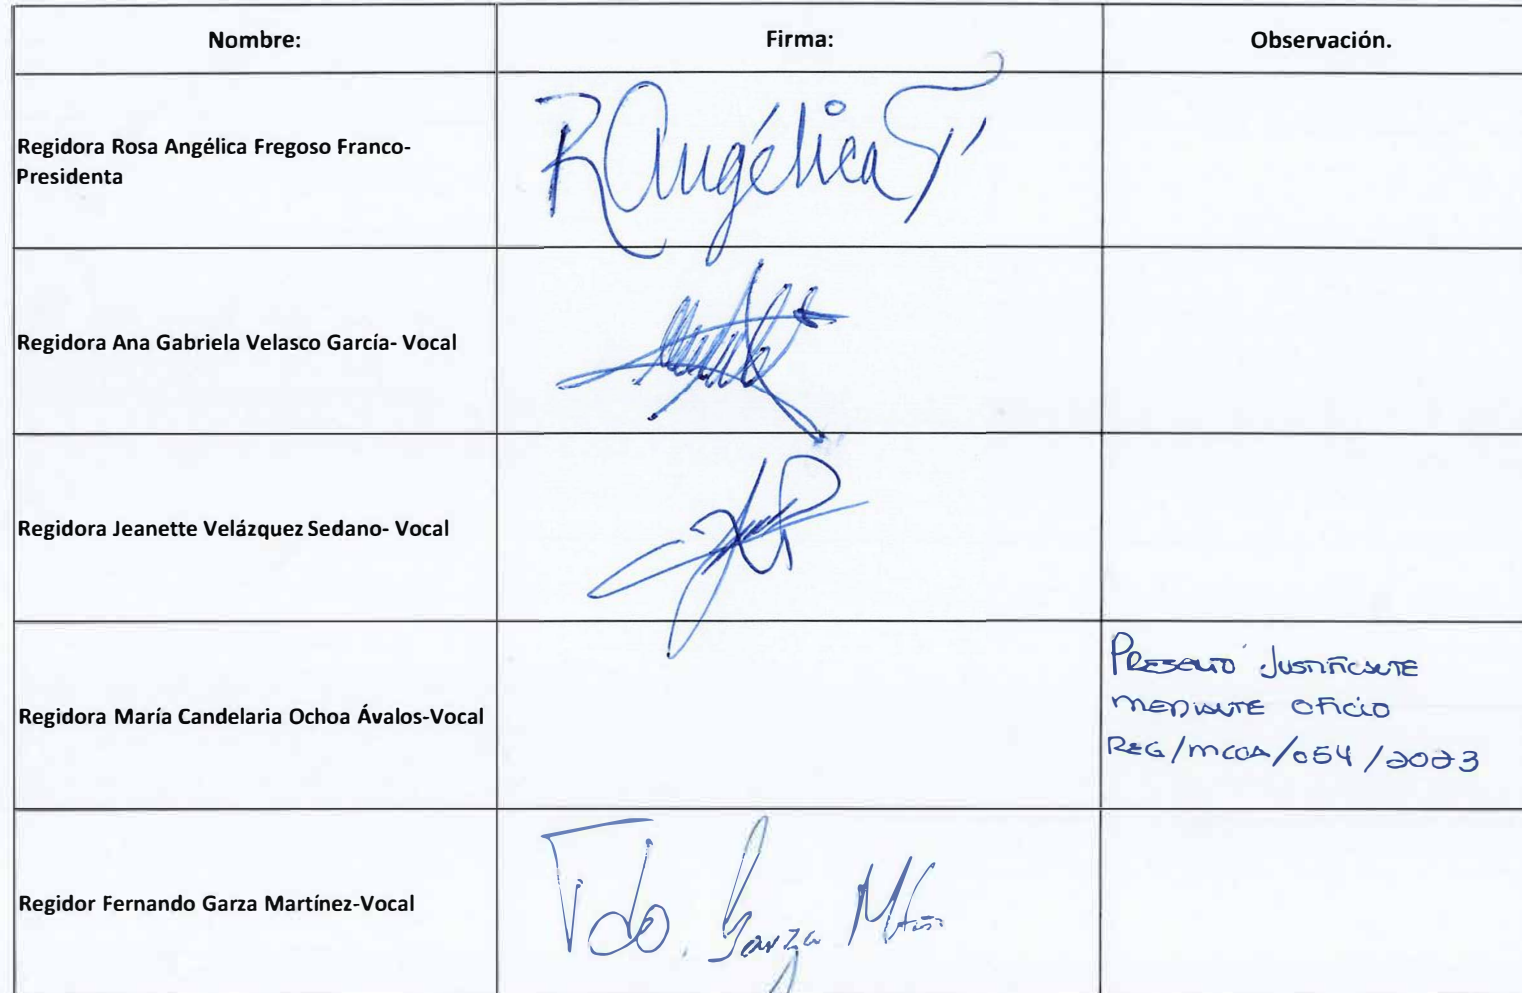 Nombre:
Firma:
Observación.
Regidora Rosa Angélica Fregoso Franco-
Presidenta
R Angélica F
Regidora Ana Gabriela Velasco García- Vocal
Regidora Jeanette Velázquez Sedano- Vocal
Regidora María Candelaria Ochoa Ávalos-Vocal
PRESENTO JUSTIFICANTE
MEDIANTE OFICIO
REG/MCOA/054/2023
Regidor Fernando Garza Martínez-Vocal
Fdo. Garza Mtnz